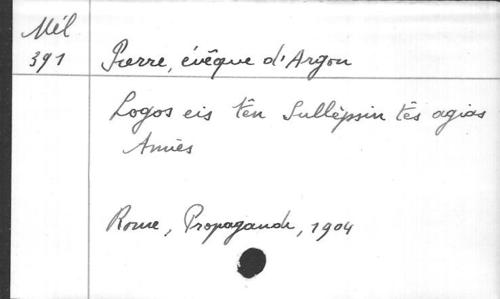 Mél
391
Pierre, évêque d'Argon
Logos eis tên Sullèpsin tês agias
Annès
Rome, Propagande, 1904